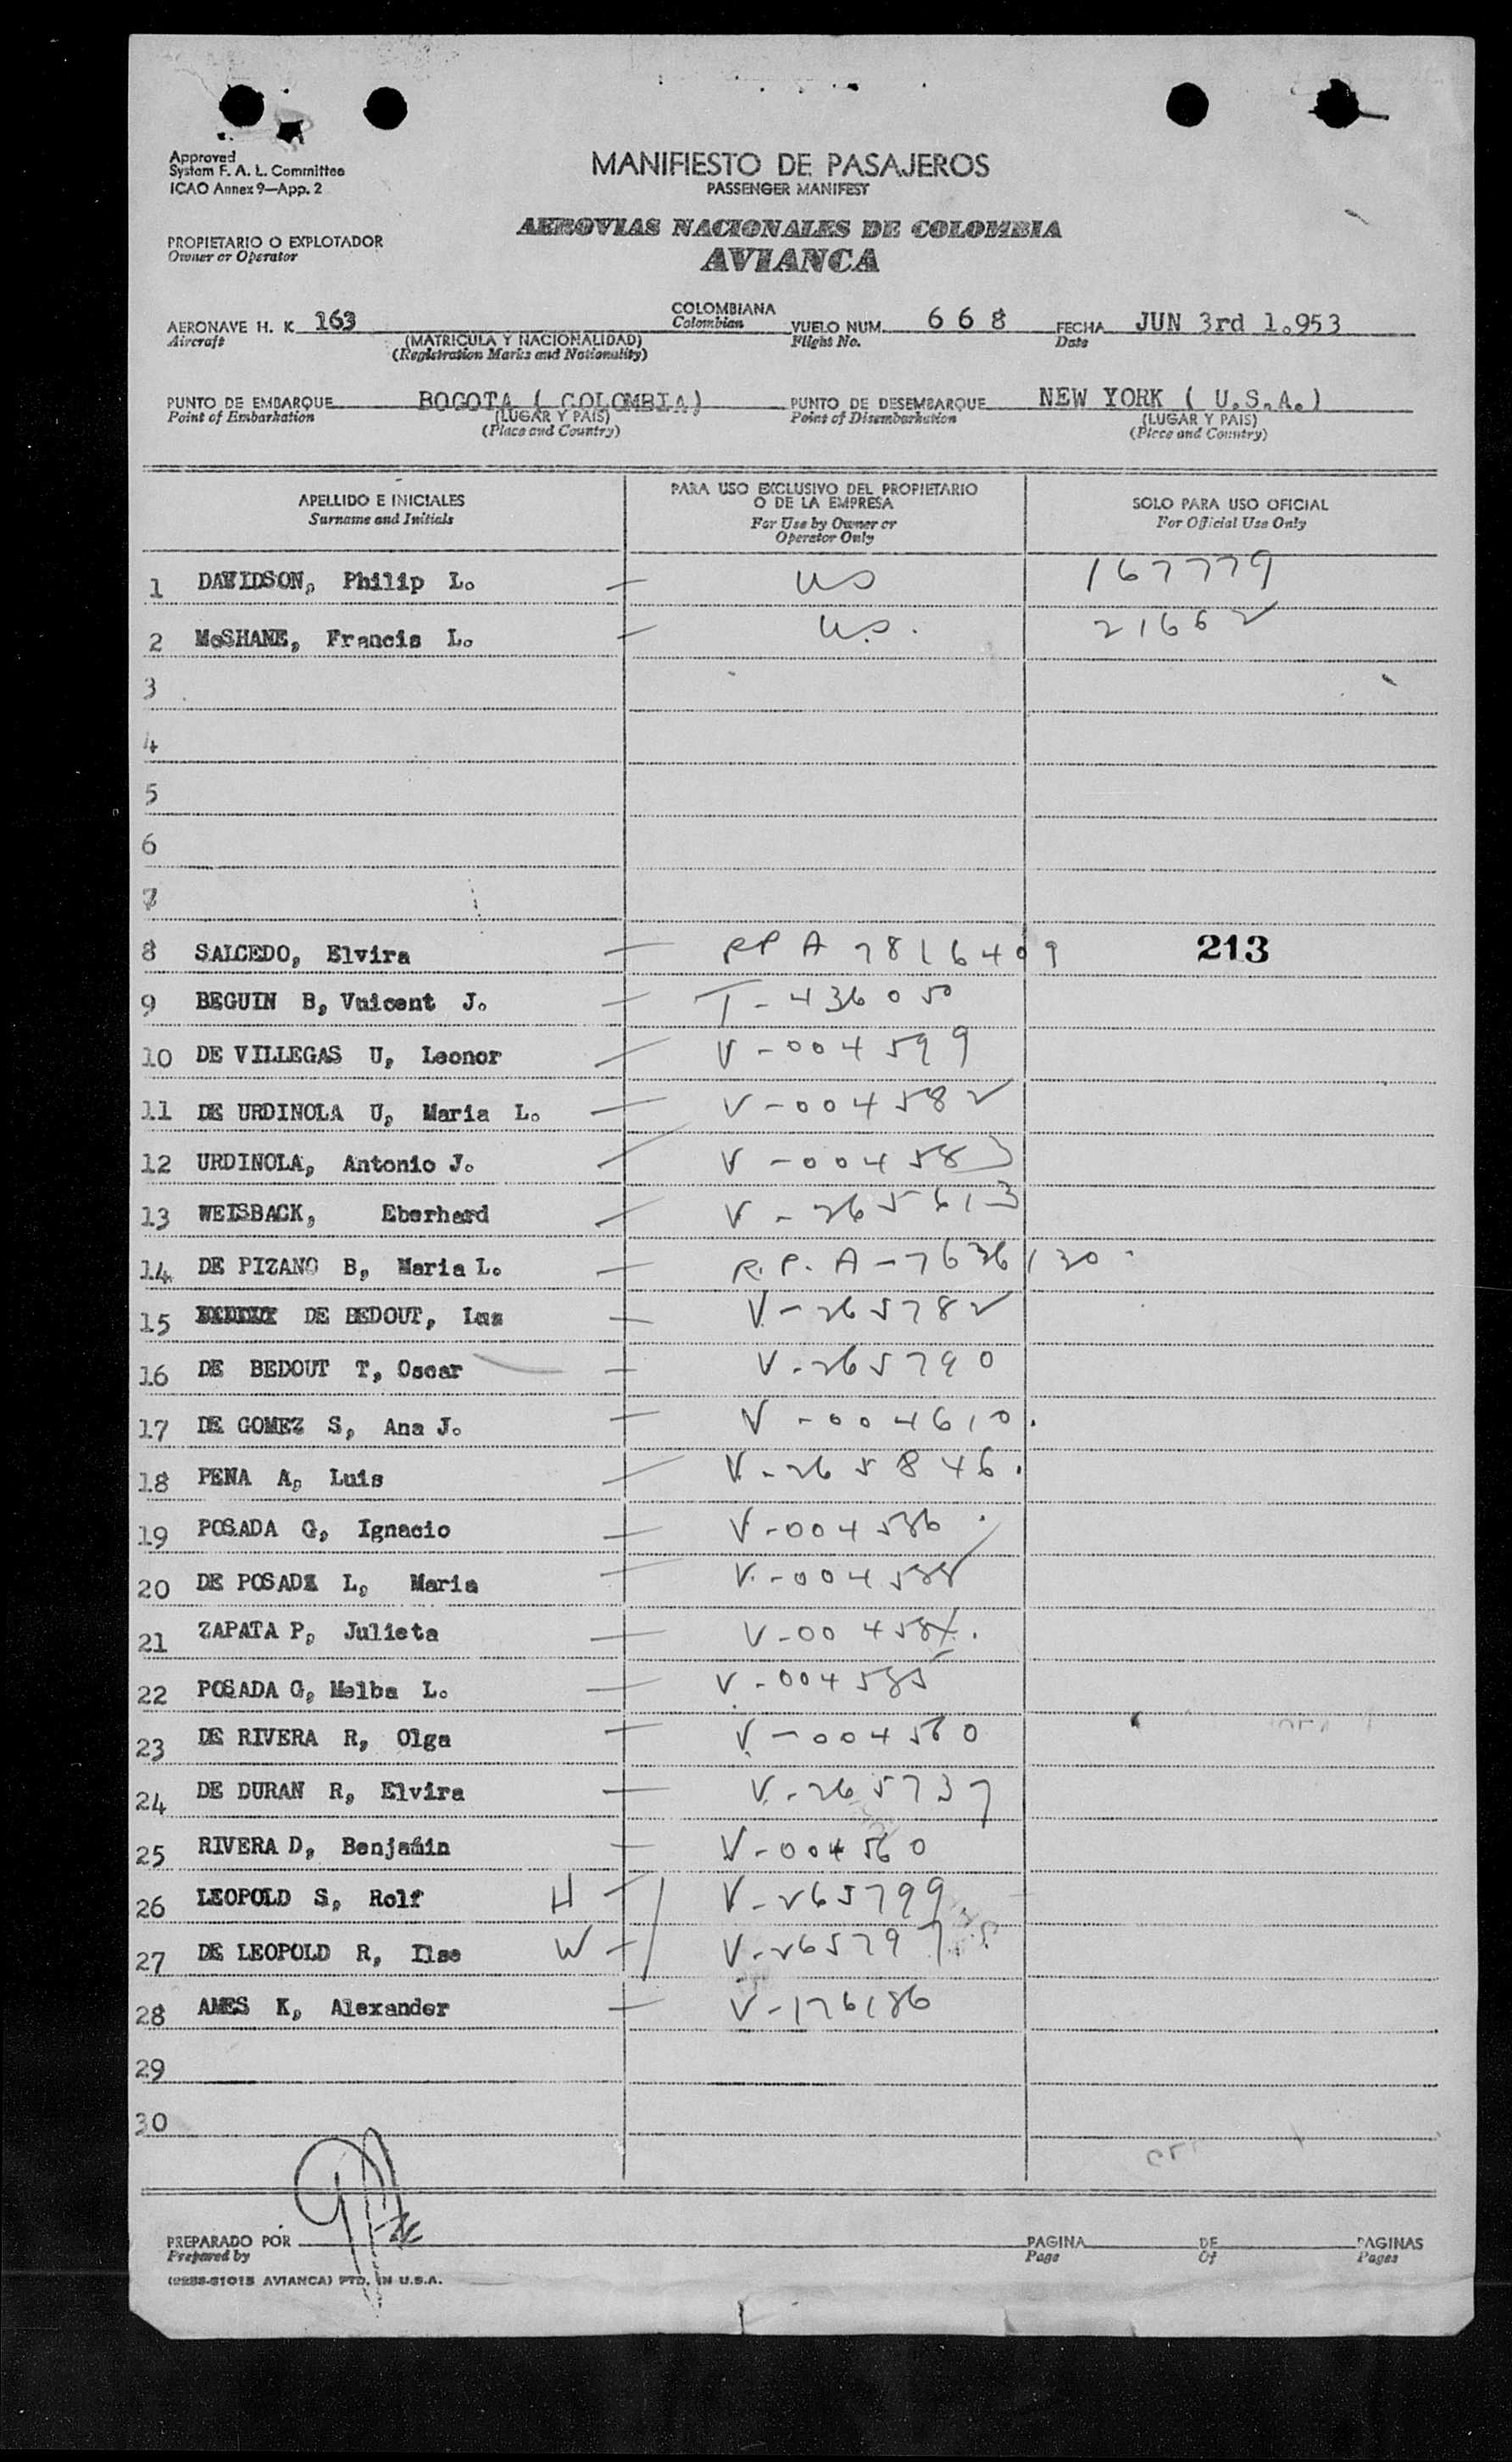 Approved
System F. A. L. Committee
ICAO Annex 9—App. 2
MANIFIESTO DE PASAJEROS
PASSENGER MANIFEST
AEROVIAS NACIONALES DE COLOMBIA
AVIANCA
PROPIETARIO O EXPLOTADOR
Owner or Operator
AERONAVE H. K 163 COLOMBIANA VUELO NUM. 668 FECHA JUN 3rd 1.953
Aircraft (MATRICULA Y NACIONALIDAD) Colombian Flight No. Date
(Registration Marks and Nationality)
PUNTO DE EMBARQUE BOGOTA ( COLOMBIA) PUNTO DE DESEMBARQUE NEW YORK ( U.S.A.)
Point of Embarkation (LUGAR Y PAIS) Point of Disembarkation (LUGAR Y PAIS)
(Place and Country) (Place and Country)
APELLIDO E INICIALES PARA USO EXCLUSIVO DEL PROPIETARIO O DE LA EMPRESA SOLO PARA USO OFICIAL
Surname and Initials For Use by Owner or Operator Only For Official Use Only
1 DAVIDSON, Philip L. — US 167779
2 McSHANE, Francis L. — U.S. 21662
3
4
5
6
7
8 SALCEDO, Elvira — RPA 7816409 213
9 BEGUIN B, Vnicent J. — T-436050
10 DE VILLEGAS U, Leonor — V-004599
11 DE URDINOLA U, Maria L. — V-004582
12 URDINOLA, Antonio J. — V-004583
13 WEISBACK, Eberhard — V-265613
14 DE PIZANO B, Maria L. — R.P.A-7636130
15 DE BEDOUT, Luz — V-265782
16 DE BEDOUT T, Oscar — V-265790
17 DE GOMEZ S, Ana J. — V-004610.
18 PENA A, Luis — V-265846.
19 POSADA G, Ignacio — V-004586
20 DE POSADA L, Maria — V-004588
21 ZAPATA P, Julieta — V-004584.
22 POSADA G, Melba L. — V-004585
23 DE RIVERA R, Olga — V-004560
24 DE DURAN R, Elvira — V-265737
25 RIVERA D, Benjamin — V-004560
26 LEOPOLD S, Rolf H — V-265799
27 DE LEOPOLD R, Ilse W — V-265797
28 AMES K, Alexander — V-176186
29
30
PREPARADO POR PAGINA DE PAGINAS
Prepared by Page Of Pages
(2288-51015 AVIANCA) PTD. IN U.S.A.